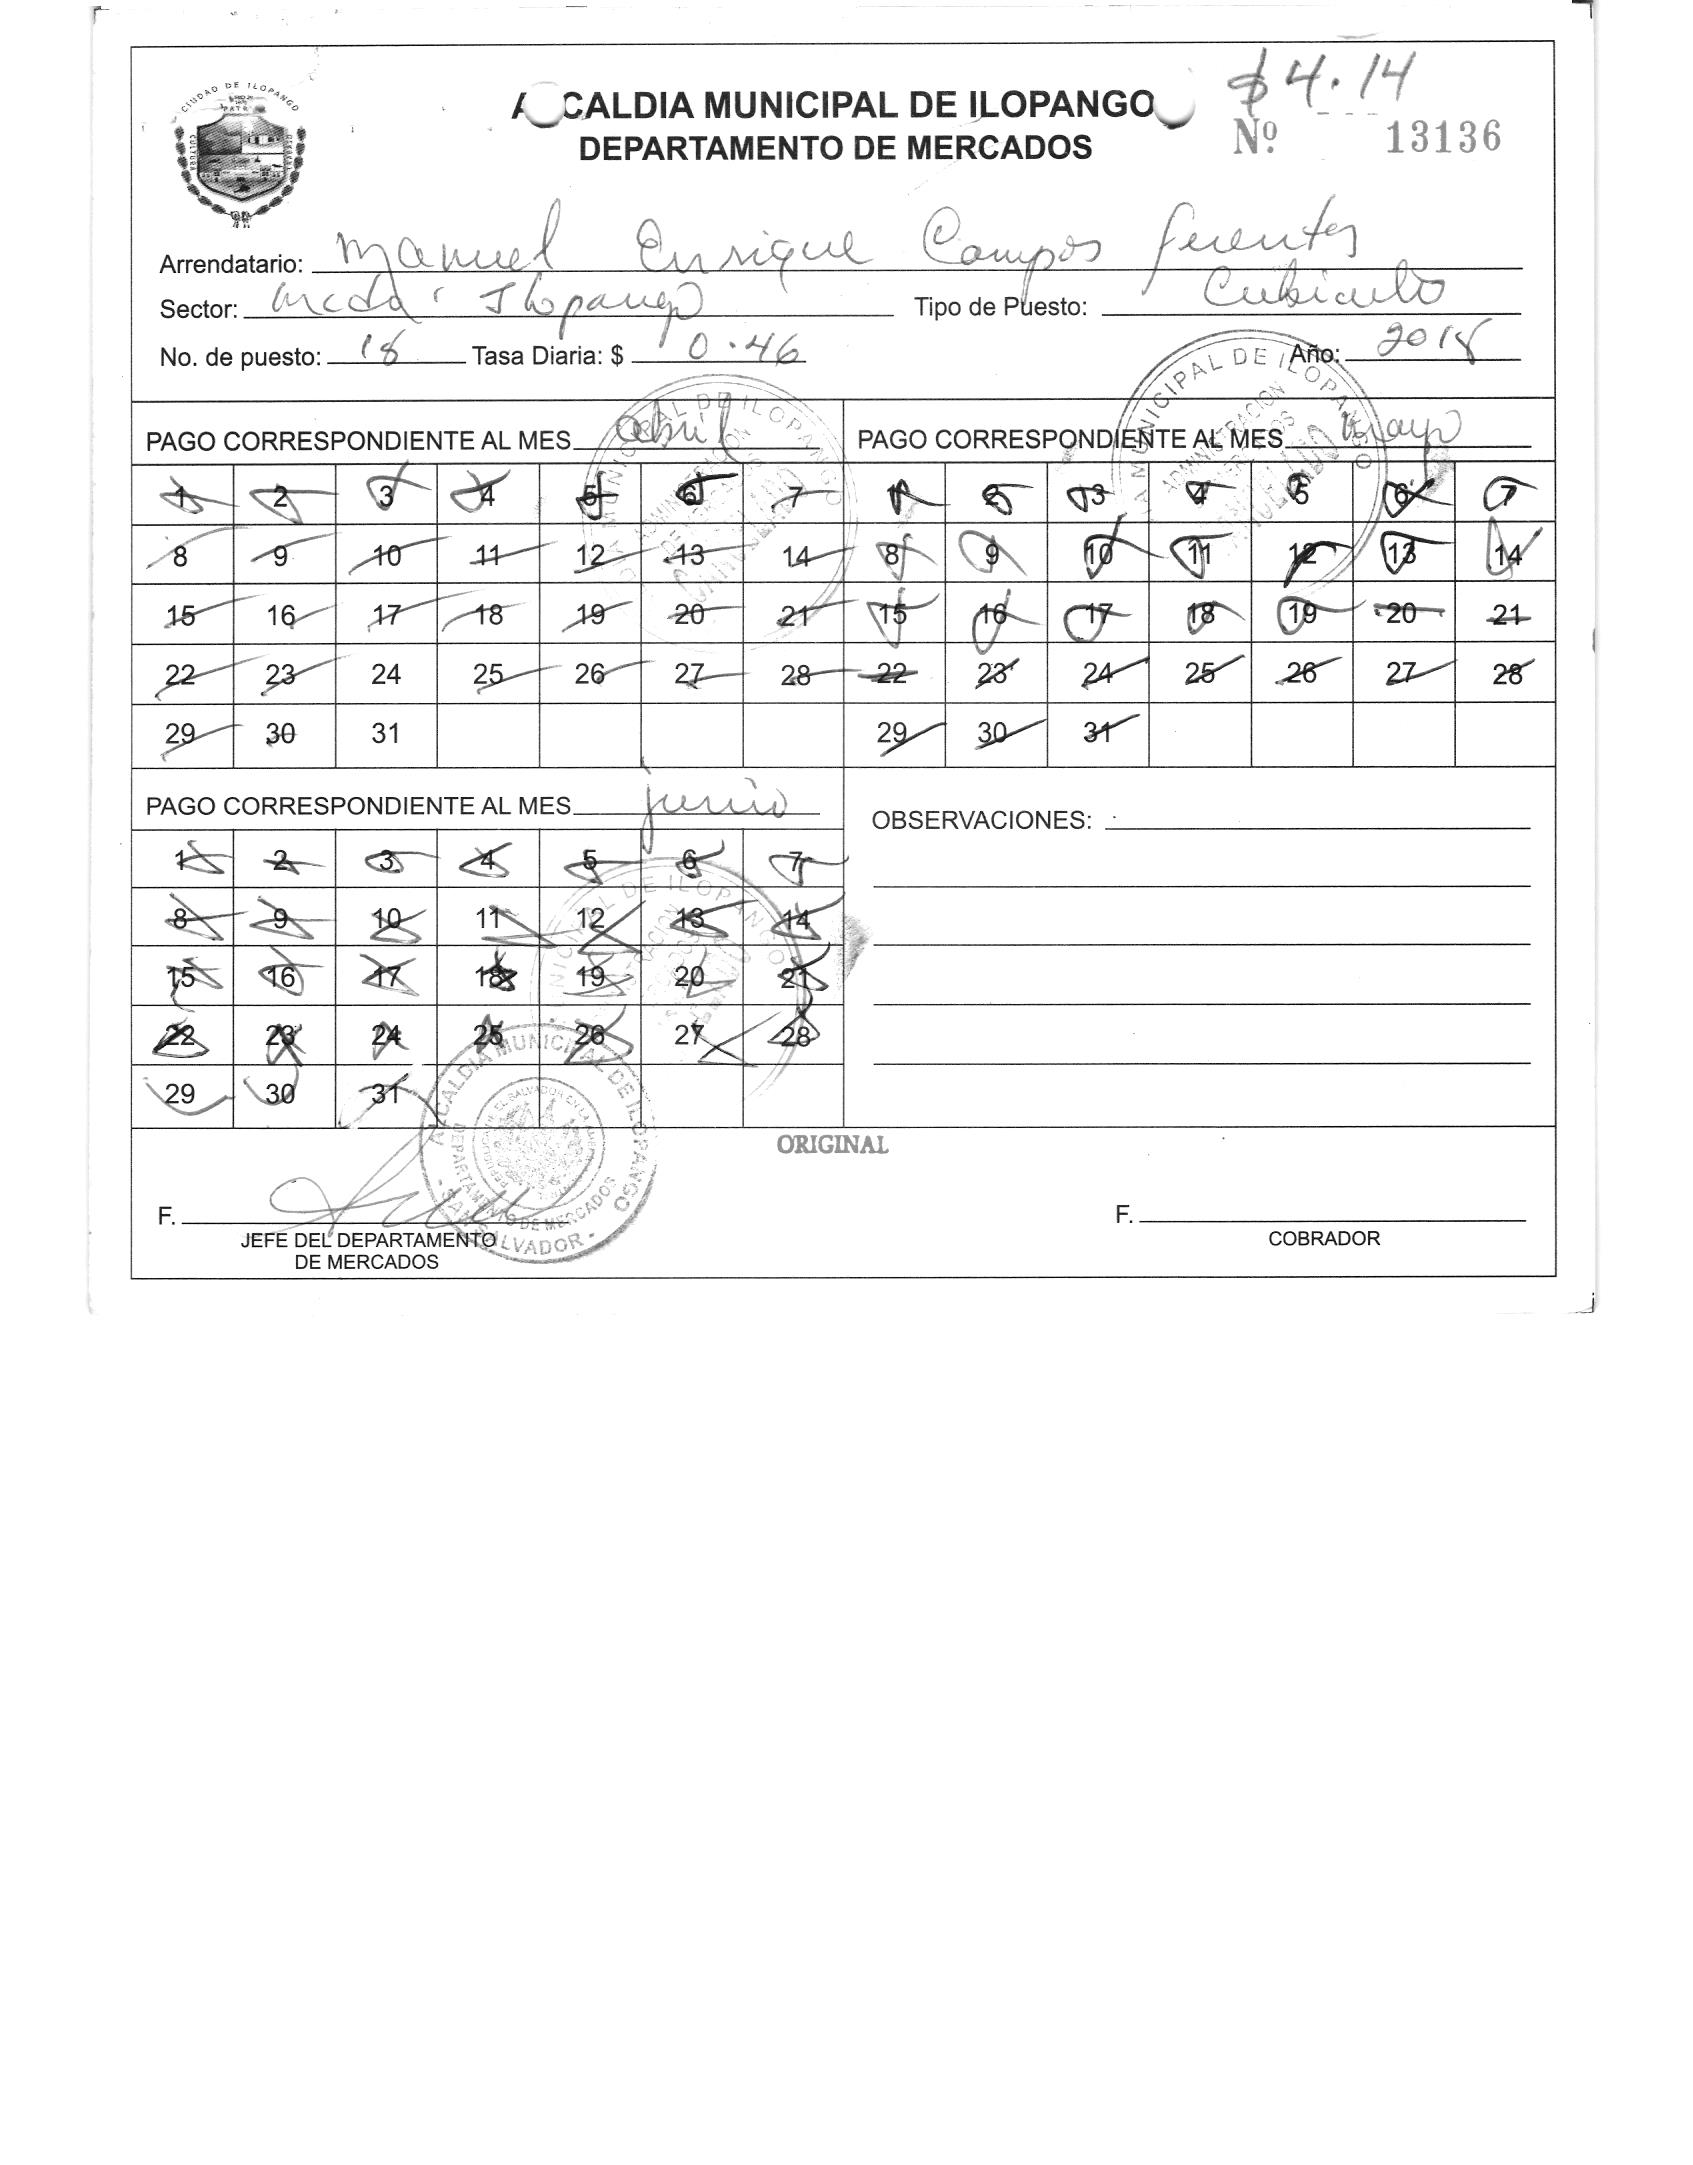 $ 4.14
ALCALDIA MUNICIPAL DE ILOPANGO
DEPARTAMENTO DE MERCADOS
Nº 13136
CIUDAD DE ILOPANGO
Arrendatario: Manuel Enrique Campos fuentes
Sector: Ilopango Tipo de Puesto: Cubiculo
No. de puesto: 18 Tasa Diaria: $ 0.46 Año: 2018
PAGO CORRESPONDIENTE AL MES abril PAGO CORRESPONDIENTE AL MES Mayo
1 2 3 4 5 6 7 1 2 3 4 5 6 7
8 9 10 11 12 13 14 8 9 10 11 12 13 14
15 16 17 18 19 20 21 15 16 17 18 19 20 21
22 23 24 25 26 27 28 22 23 24 25 26 27 28
29 30 31 29 30 31
PAGO CORRESPONDIENTE AL MES junio
OBSERVACIONES:
1 2 3 4 5 6 7
8 9 10 11 12 13 14
15 16 17 18 19 20 21
22 23 24 25 26 27 28
29 30 31
ALCALDIA MUNICIPAL DE ILOPANGO
DEPARTAMENTO DE MERCADOS
SAN SALVADOR
ORIGINAL
F. F.
JEFE DEL DEPARTAMENTO COBRADOR
DE MERCADOS